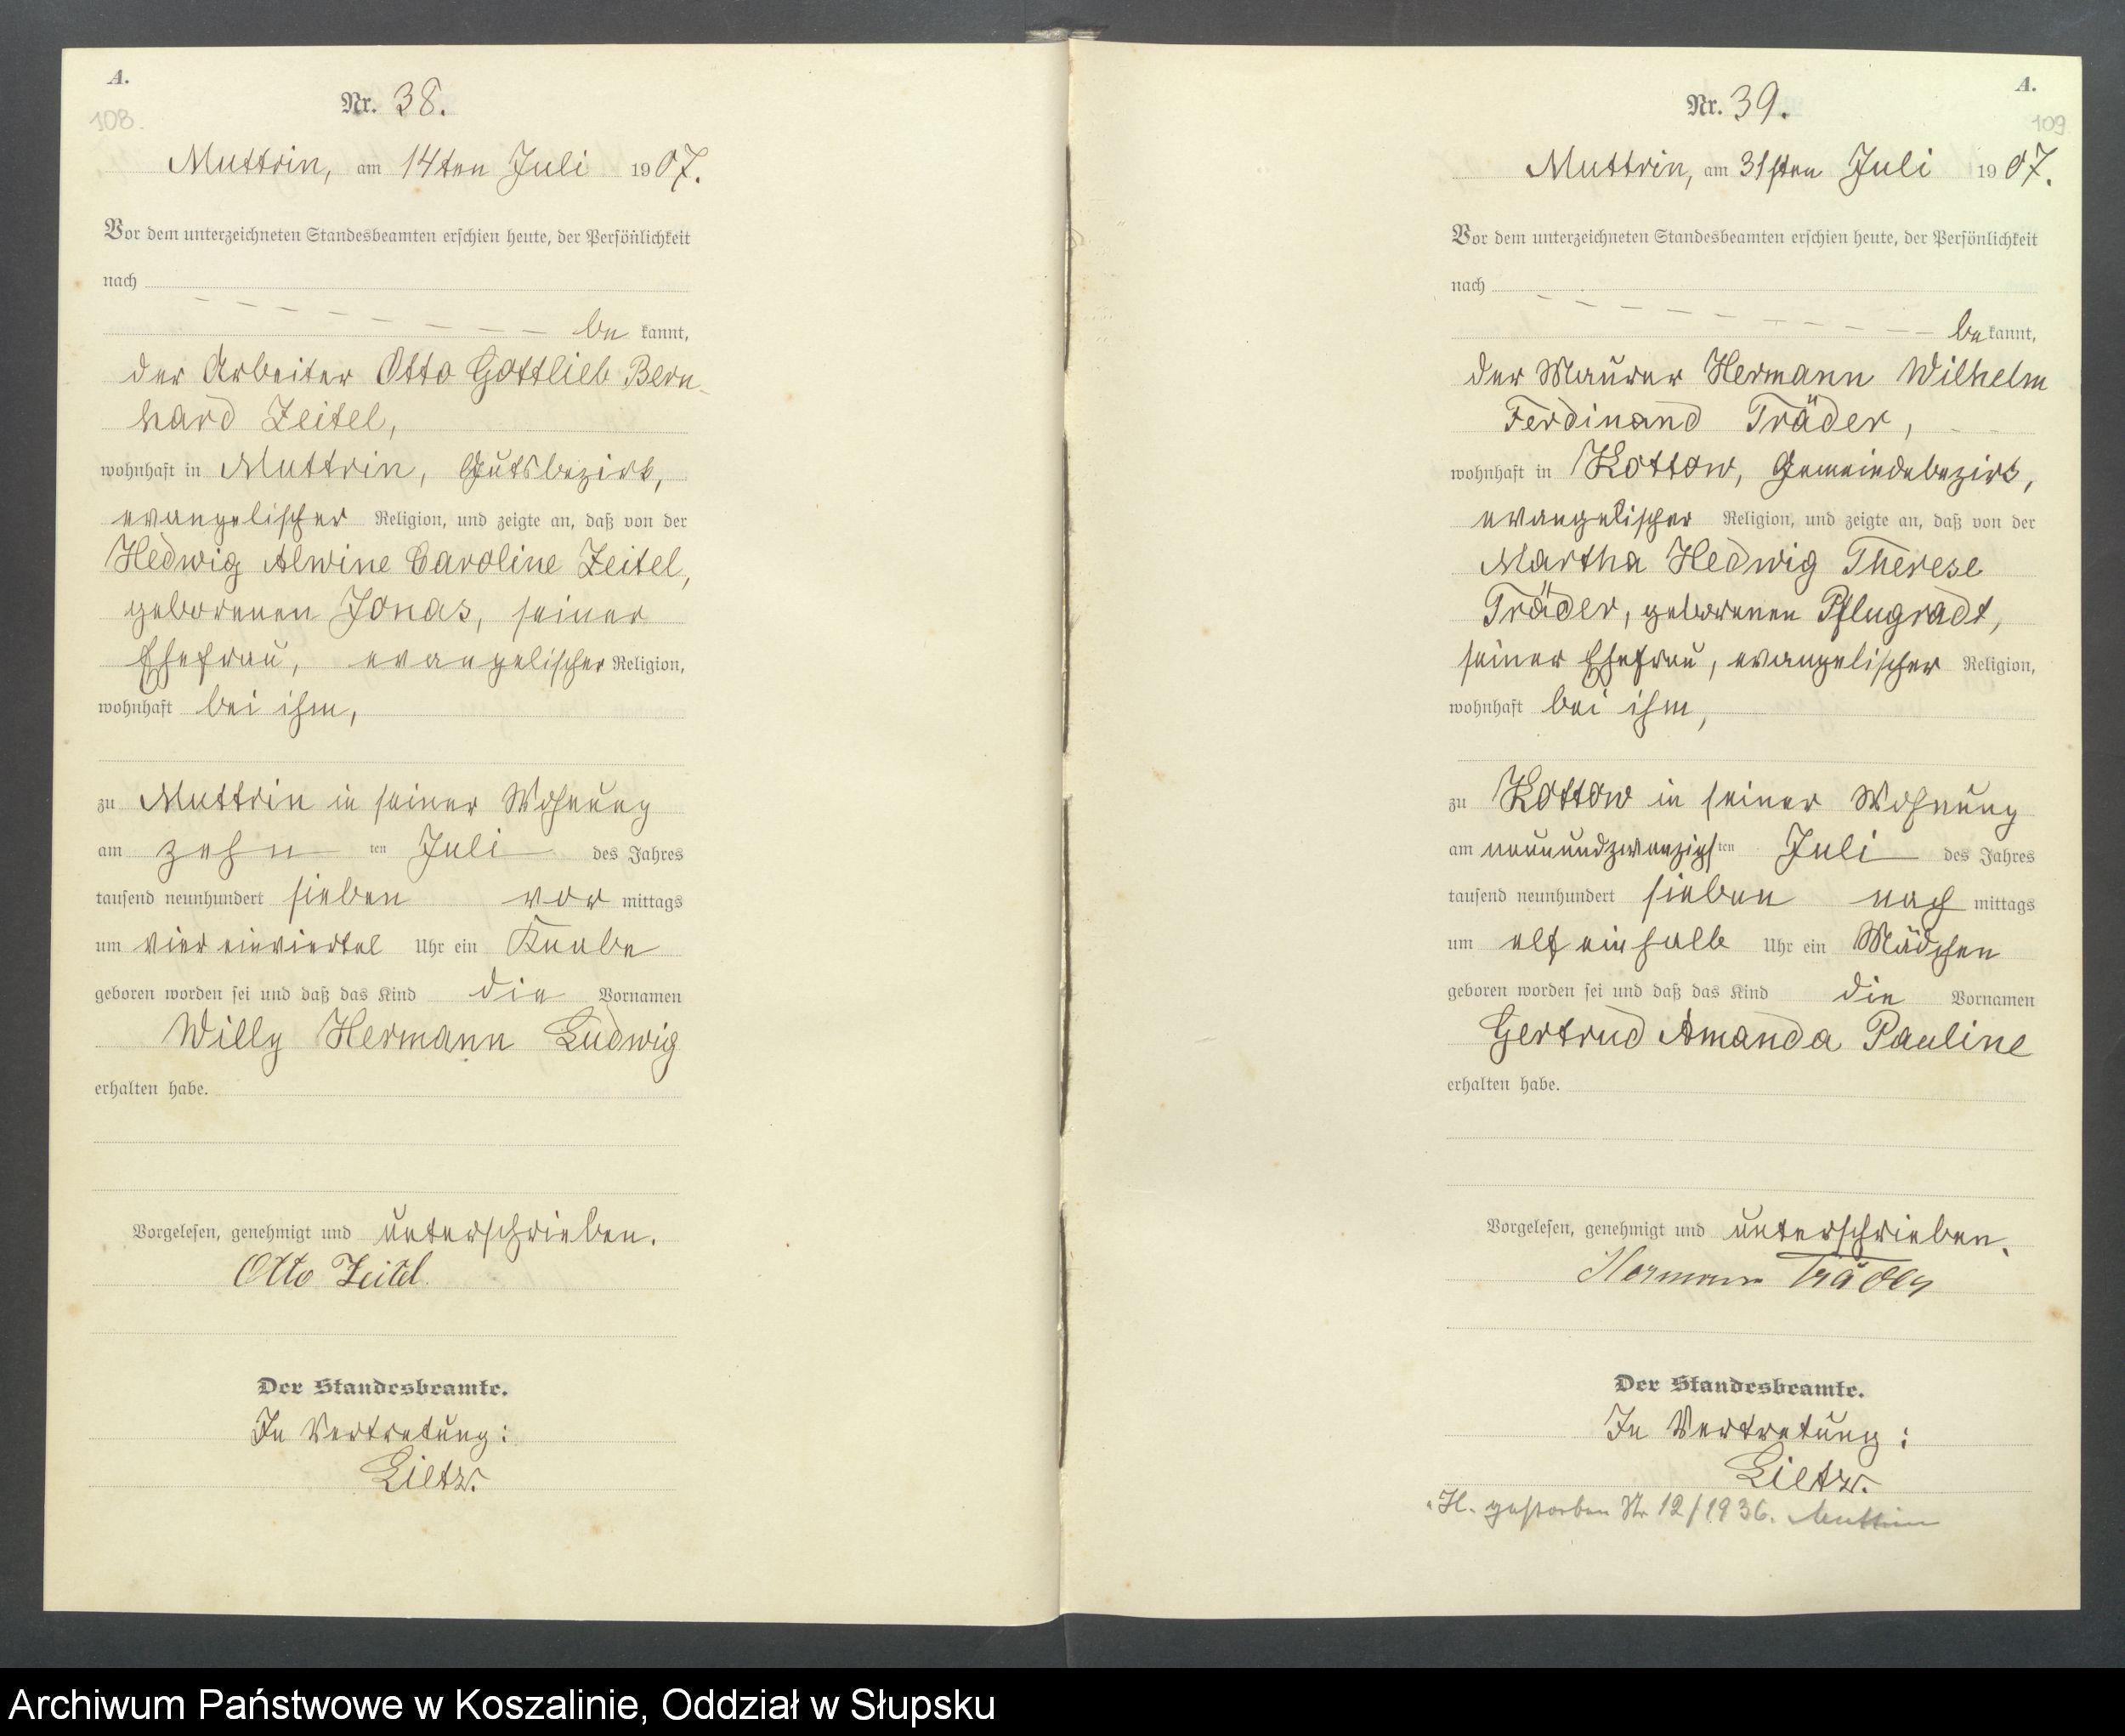 A.
108.
Nr. 38.
Muttrin, am 14ten Juli 1907.
Vor dem unterzeichneten Standesbeamten erschien heute, der Persönlichkeit
nach
be kannt,
der Arbeiter Otto Gottlieb Bern-
hard Zeitel,
wohnhaft in Muttrin, Gutsbezirk,
evangelischer Religion, und zeigte an, daß von der
Hedwig Alwine Caroline Zeitel,
geborenen Jonas, seiner
Ehefrau, evangelischer Religion,
wohnhaft bei ihm,
zu Muttrin in seiner Wohnung
am zehn ten Juli des Jahres
tausend neunhundert sieben vor mittags
um vier einviertel Uhr ein Knabe
geboren worden sei und daß das Kind die Vornamen
Willy Hermann Ludwig
erhalten habe.
Vorgelesen, genehmigt und unterschrieben.
Otto Zeitel.
Der Standesbeamte.
In Vertretung:
Lietz.
A.
109
Nr. 39.
Muttrin, am 31sten Juli 1907.
Vor dem unterzeichneten Standesbeamten erschien heute, der Persönlichkeit
nach
be kannt,
der Maurer Hermann Wilhelm
Ferdinand Träder,
wohnhaft in Kottow, Gemeindebezirk,
evangelischer Religion, und zeigte an, daß von der
Martha Hedwig Therese
Träder, geborenen Pflugradt,
seiner Ehefrau, evangelischer Religion,
wohnhaft bei ihm,
zu Kottow in seiner Wohnung
am neunundzwanzigsten Juli des Jahres
tausend neunhundert sieben nach mittags
um elf einhalb Uhr ein Mädchen
geboren worden sei und daß das Kind die Vornamen
Gertrud Amanda Pauline
erhalten habe.
Vorgelesen, genehmigt und unterschrieben.
Hermann Träder
Der Standesbeamte.
In Vertretung:
Lietz.
gestorben Nr 12/1936. Muttrin
Archiwum Państwowe w Koszalinie, Oddział w Słupsku